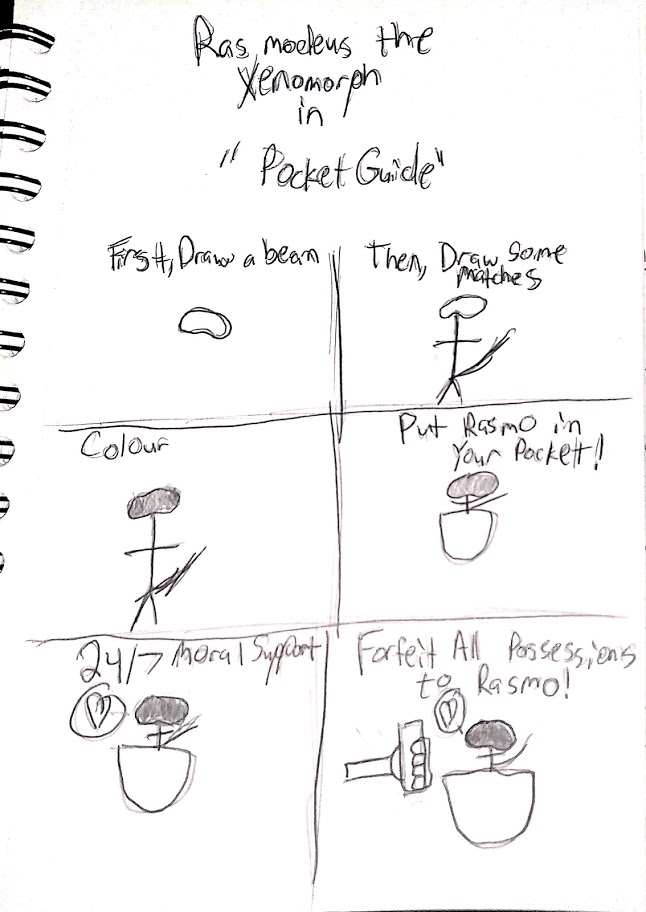 Rasmodeus the
Xenomorph
in
"Pocket Guide"
First, Draw a bean
Then, Draw Some
matches
Colour
Put Rasmo in
Your Pockett!
24/7 Moral Support
Forfeit All Possessions
to Rasmo!